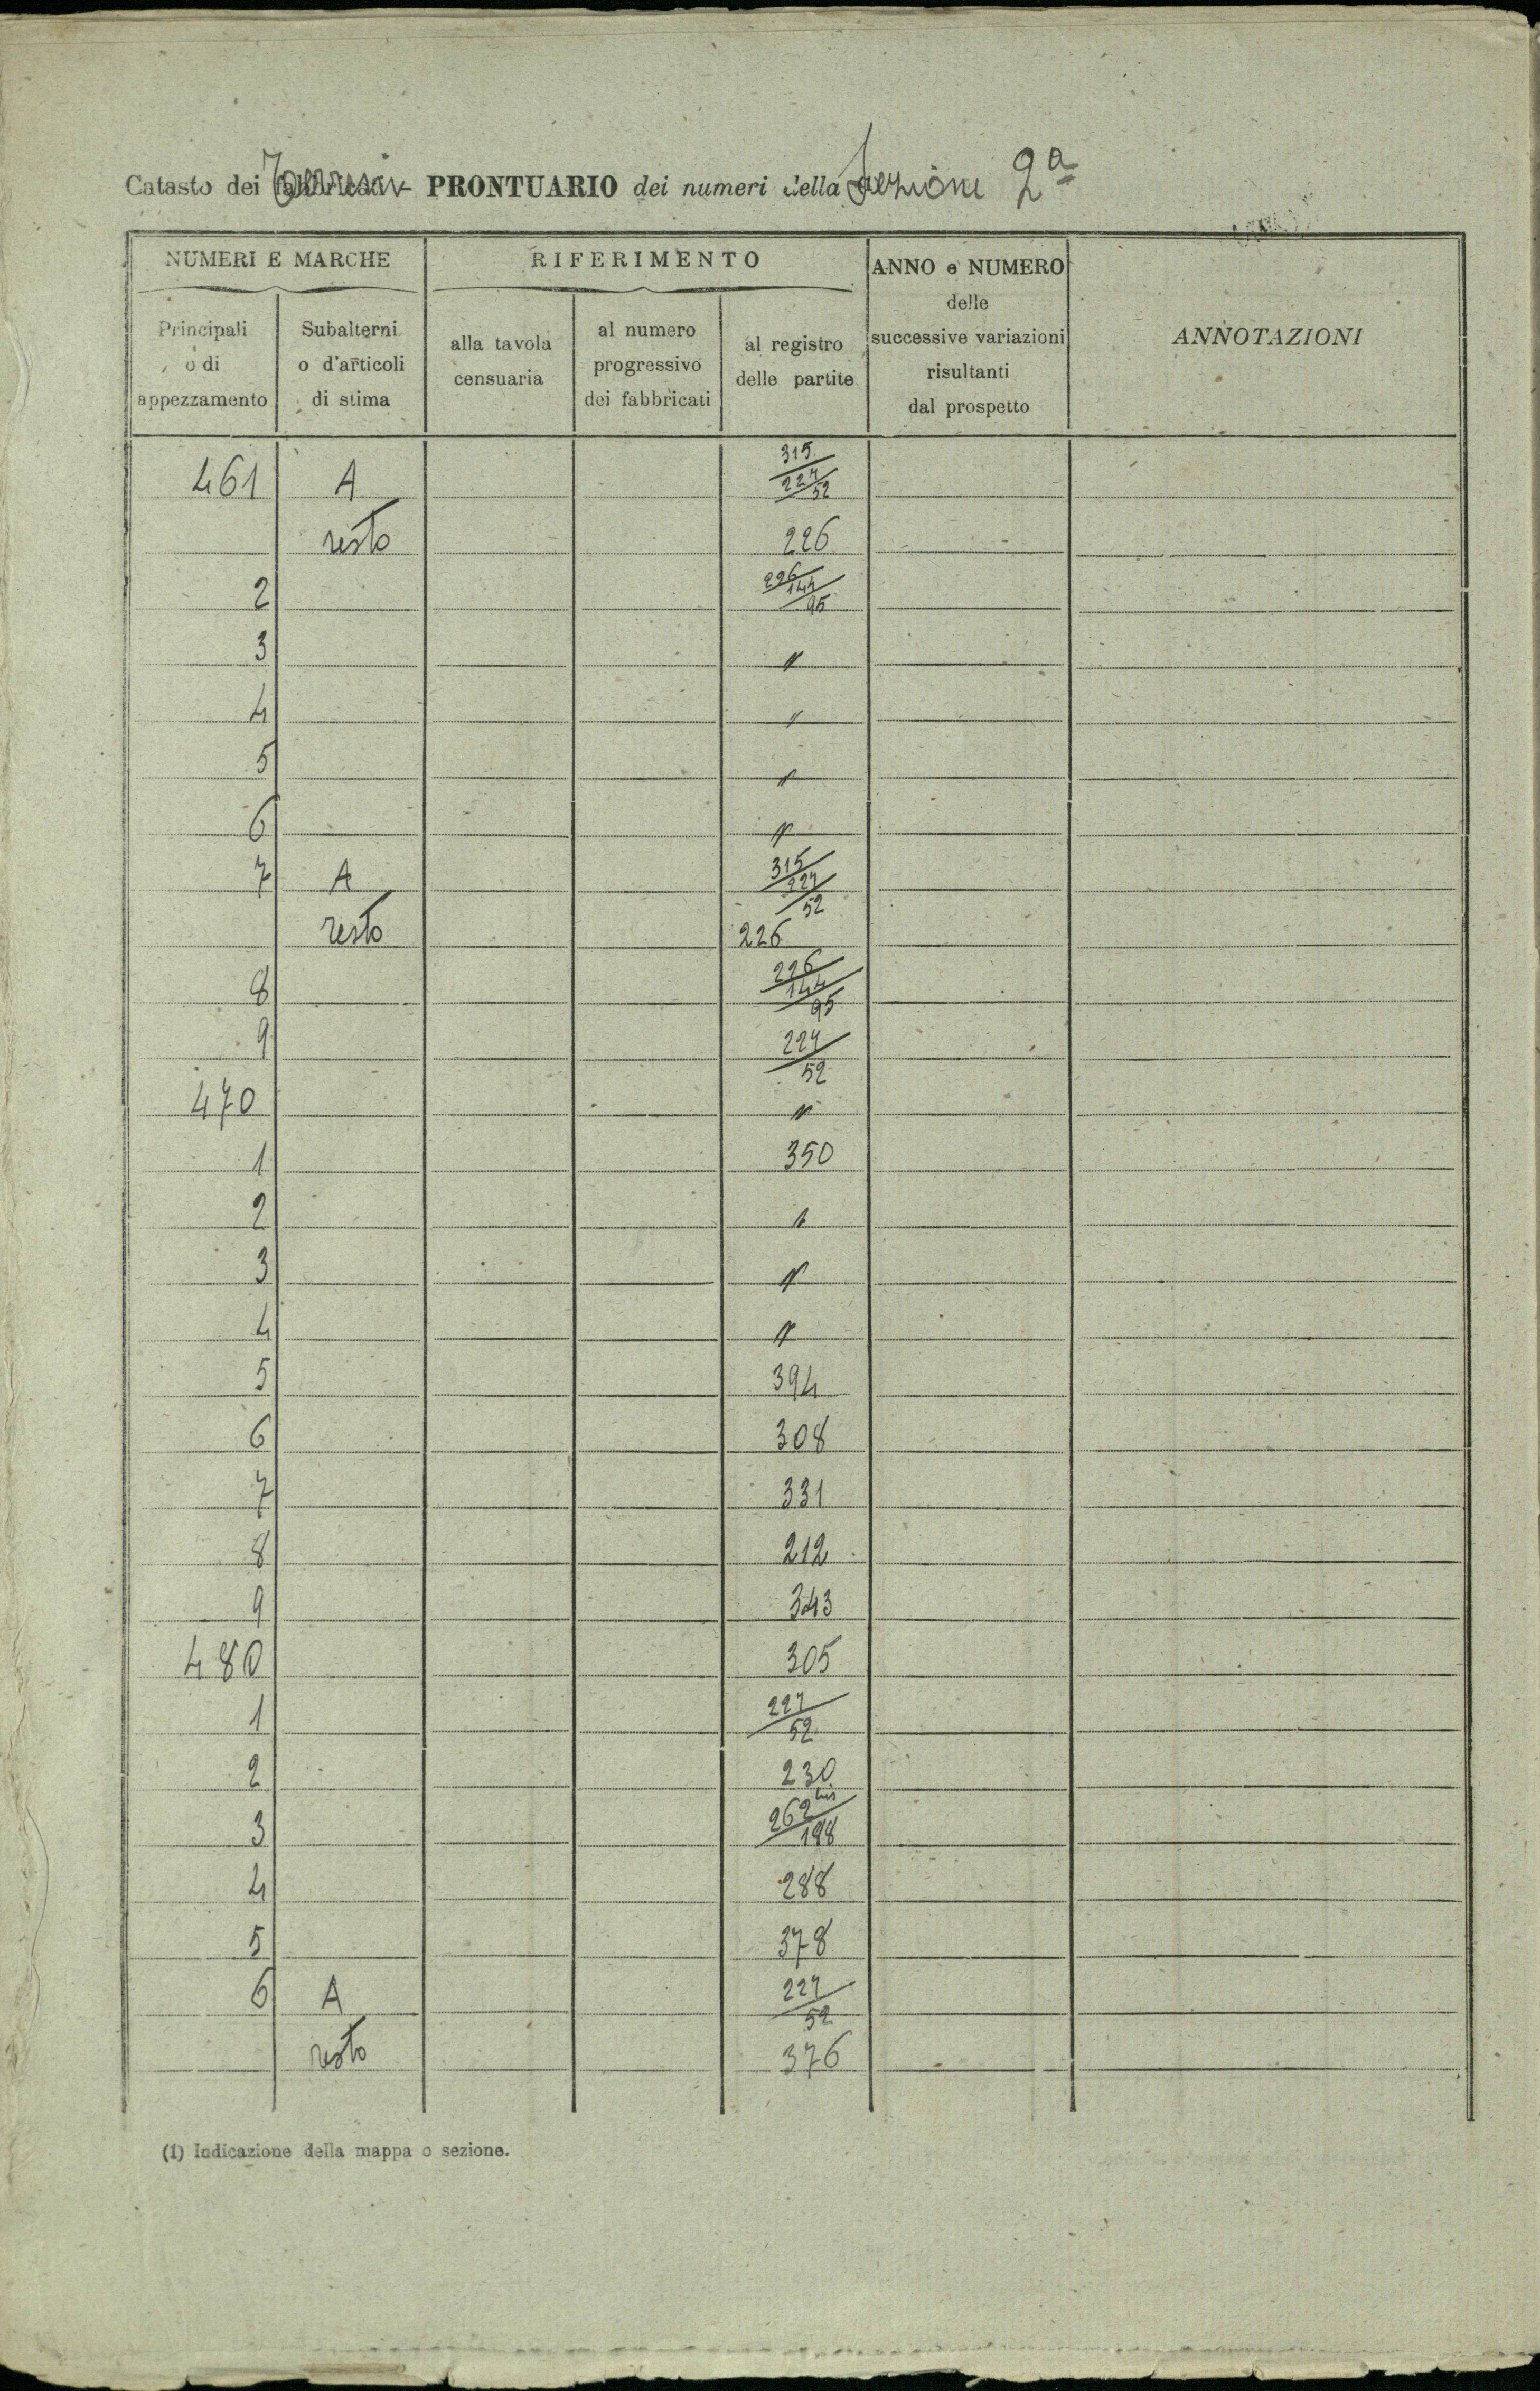 Catasto dei Terreni PRONTUARIO dei numeri della Sezione 2ª
NUMERI E MARCHE
RIFERIMENTO
ANNO e NUMERO
delle
successive variazioni
risultanti
dal prospetto
ANNOTAZIONI
Principali
o di
appezzamento
Subalterni
o d'articoli
di stima
alla tavola
censuaria
al numero
progressivo
dei fabbricati
al registro
delle partite
461 A 315/227/52
resto 226
2 226/144/95
3 "
4 "
5 "
6 "
7 A 315/227/52
resto 226
8 226/144/95
9 227/52
470 "
1 350
2 "
3 "
4 "
5 394
6 308
7 331
8 212
9 343
480 305
1 227/52
2 230
3 262 bis/198
4 288
5 378
6 A 227/52
resto 376
(1) Indicazione della mappa o sezione.